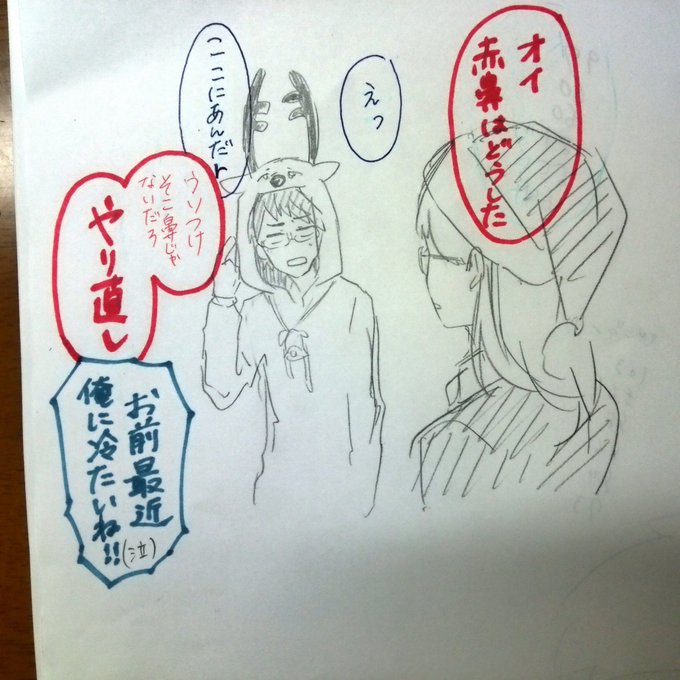 オイ
赤鼻はどうした
えっ
ここにあんだr
うソつけ
そこ鼻じゃ
ないだろ
やり直し
お前最近
俺に冷たいね!!
(泣)